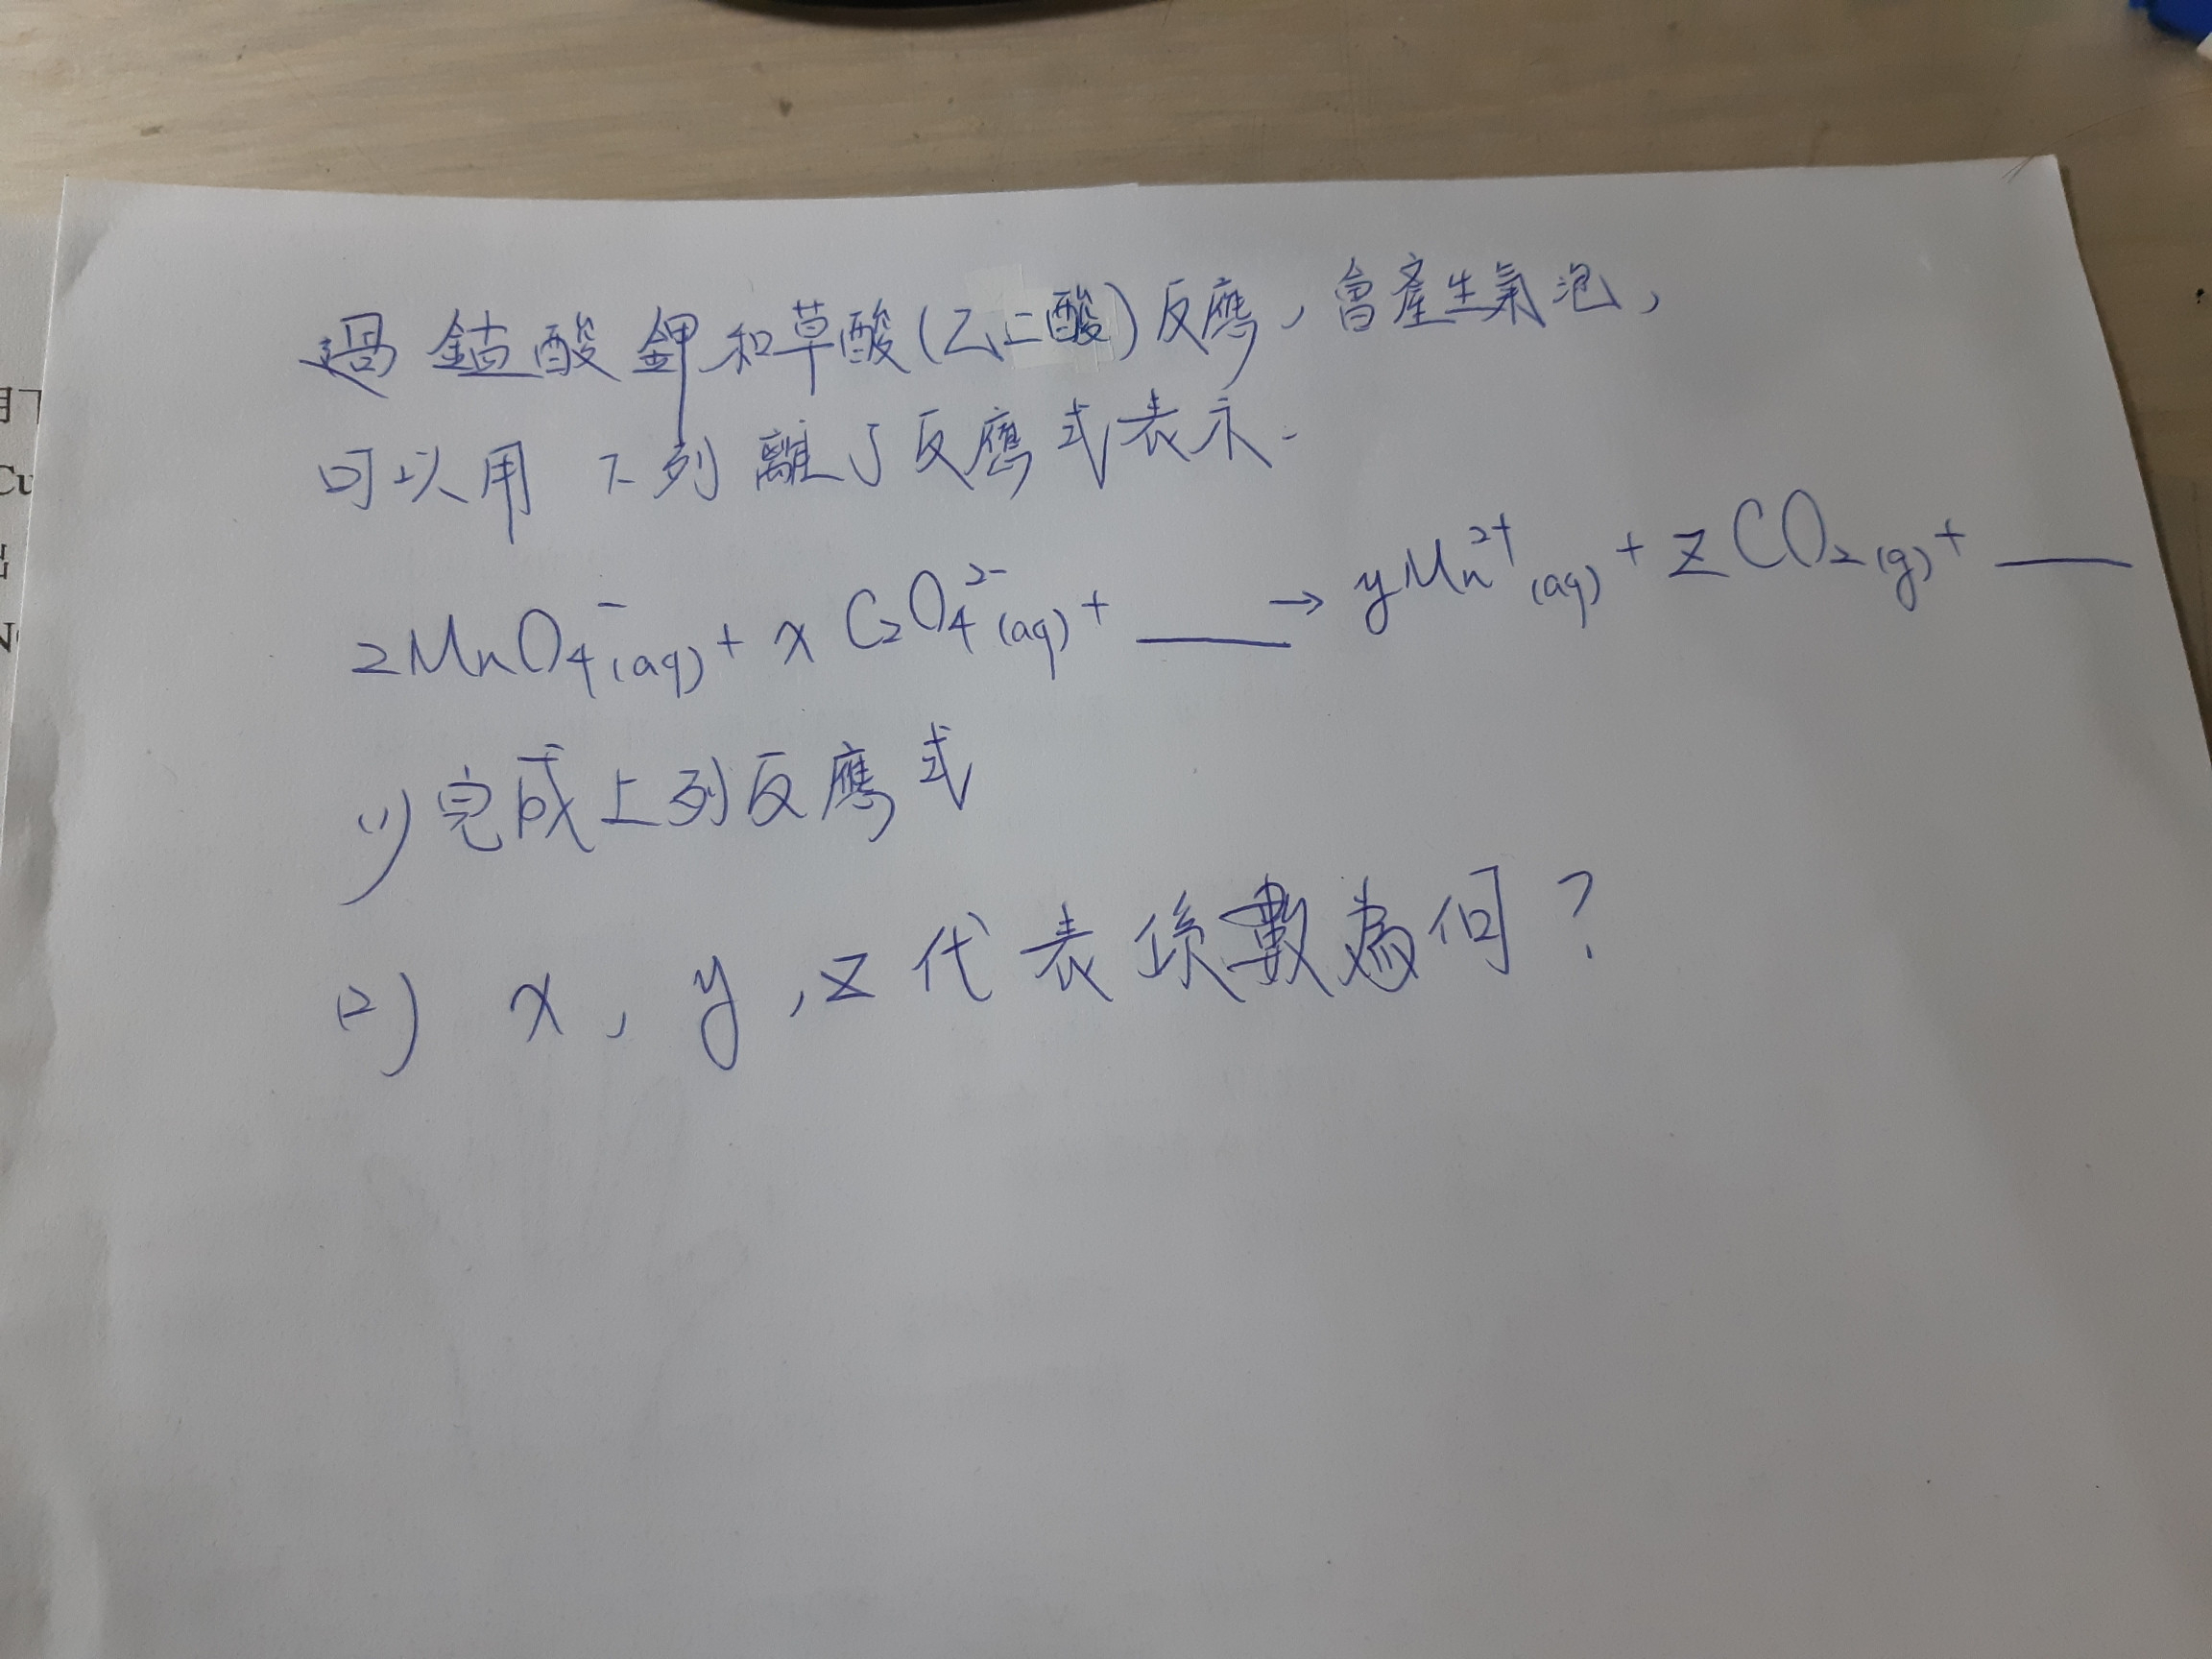 過錳酸鉀和草酸(乙二酸)反應,會產生氣泡,
可以用下列離子反應式表示.
2MnO₄⁻(aq) + x C₂O₄²⁻(aq) + ____ → yMn²⁺(aq) + zCO₂(g) + ____
(1) 完成上列反應式
(2) x, y, z代表係數為何?
Cu